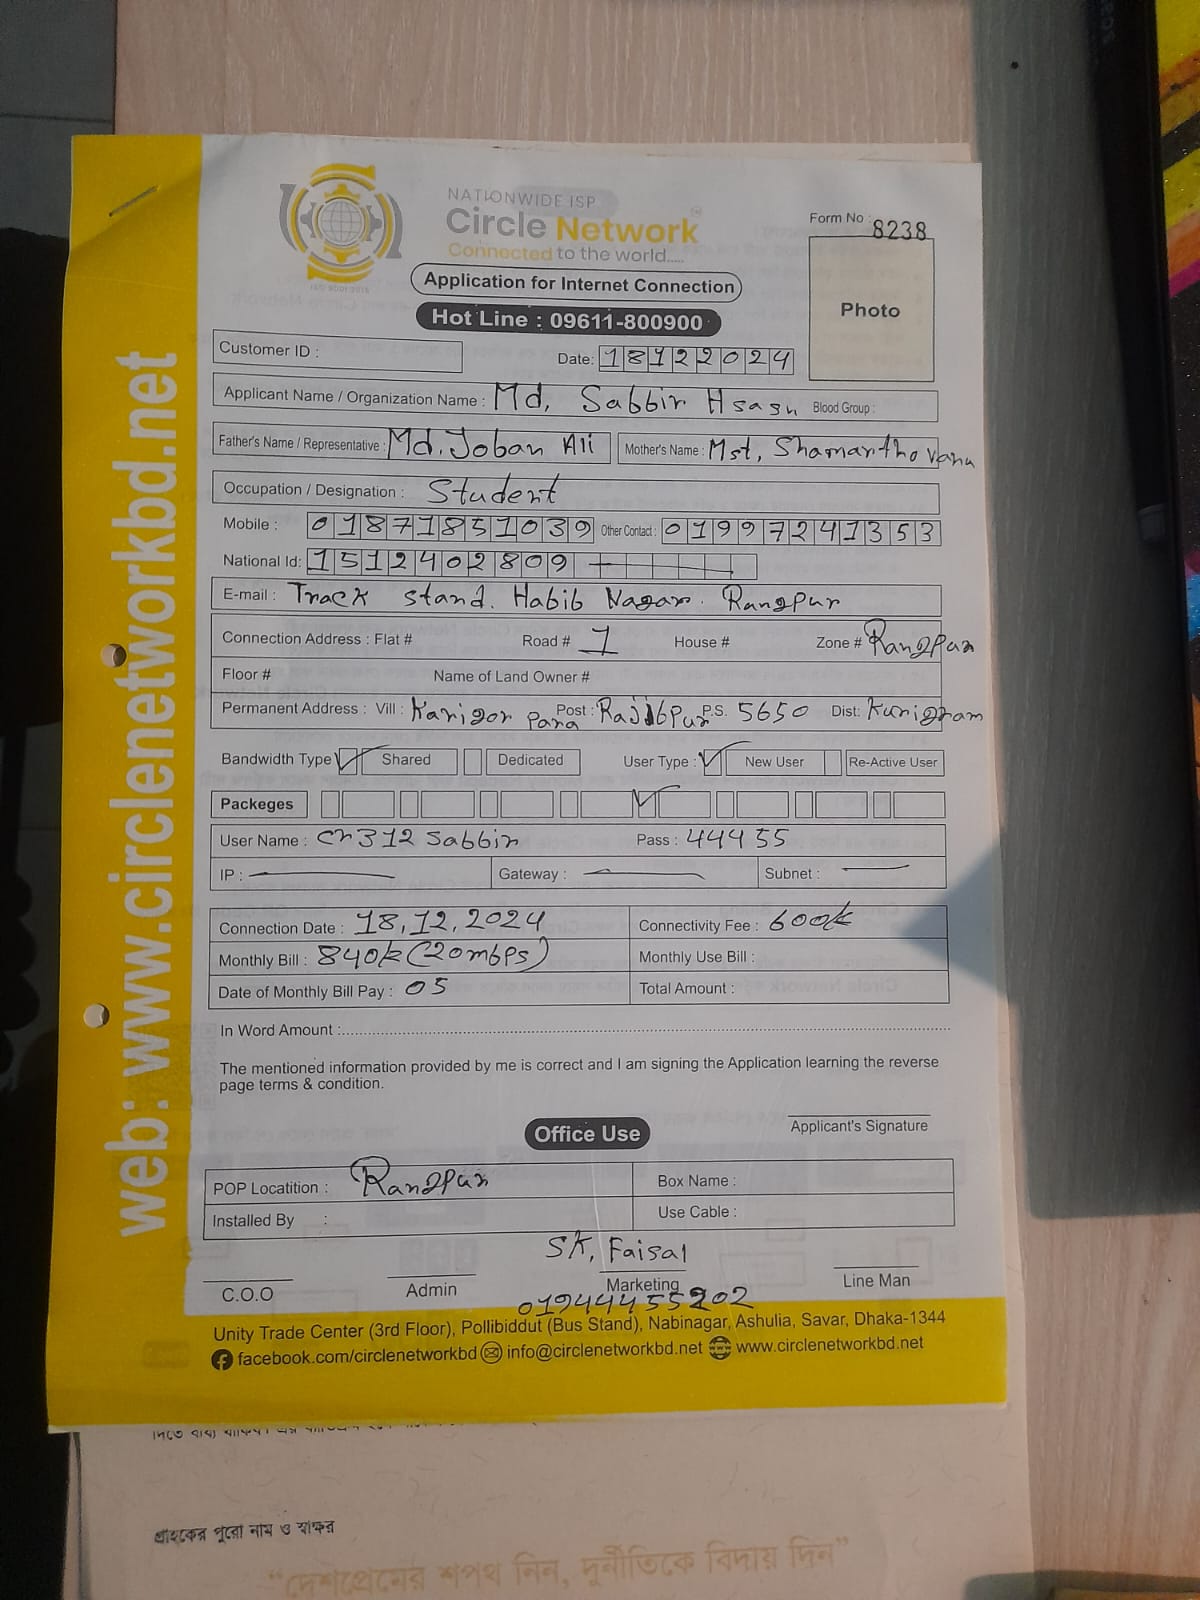 NATIONWIDE ISP
Circle Network
Connected to the world.....
Form No : 8238
Application for Internet Connection
Photo
Hot Line : 09611-800900
Customer ID :
Date: 18122024
Applicant Name / Organization Name : Md, Sabbir Hsasn Blood Group :
Father's Name / Representative : Md. Joban Ali Mother's Name : Mst, Shamartho Vanu
Occupation / Designation : Student
Mobile : 01871851039 Other Contact : 01997241353
National Id: 1512402809
E-mail : Track Stand. Habib Nagar. Rangpur
Connection Address : Flat # Road # 1 House # Zone # Rangpur
Floor # Name of Land Owner #
Permanent Address : Vill : Karigor Para Post : Rajibpur P.S. 5650 Dist: Kurigram
Bandwidth Type Shared Dedicated User Type : New User Re-Active User
Packeges
User Name : cn312 Sabbir Pass : 44455
IP : Gateway : Subnet :
Connection Date : 18,12,2024 Connectivity Fee : 600/k
Monthly Bill : 840/k (20mbps) Monthly Use Bill :
Date of Monthly Bill Pay : 05 Total Amount :
In Word Amount :
The mentioned information provided by me is correct and I am signing the Application learning the reverse
page terms & condition.
Applicant's Signature
Office Use
POP Locatition : Rangpur Box Name :
Installed By : Use Cable :
SK, Faisal
C.O.O Admin Marketing Line Man
01944455202
Unity Trade Center (3rd Floor), Pollibiddut (Bus Stand), Nabinagar, Ashulia, Savar, Dhaka-1344
facebook.com/circlenetworkbd info@circlenetworkbd.net www.circlenetworkbd.net
web: www.circlenetworkbd.net
গ্রাহকের পুরো নাম ও স্বাক্ষর
“দেশপ্রেমের শপথ নিন, দুর্নীতিকে বিদায় দিন”